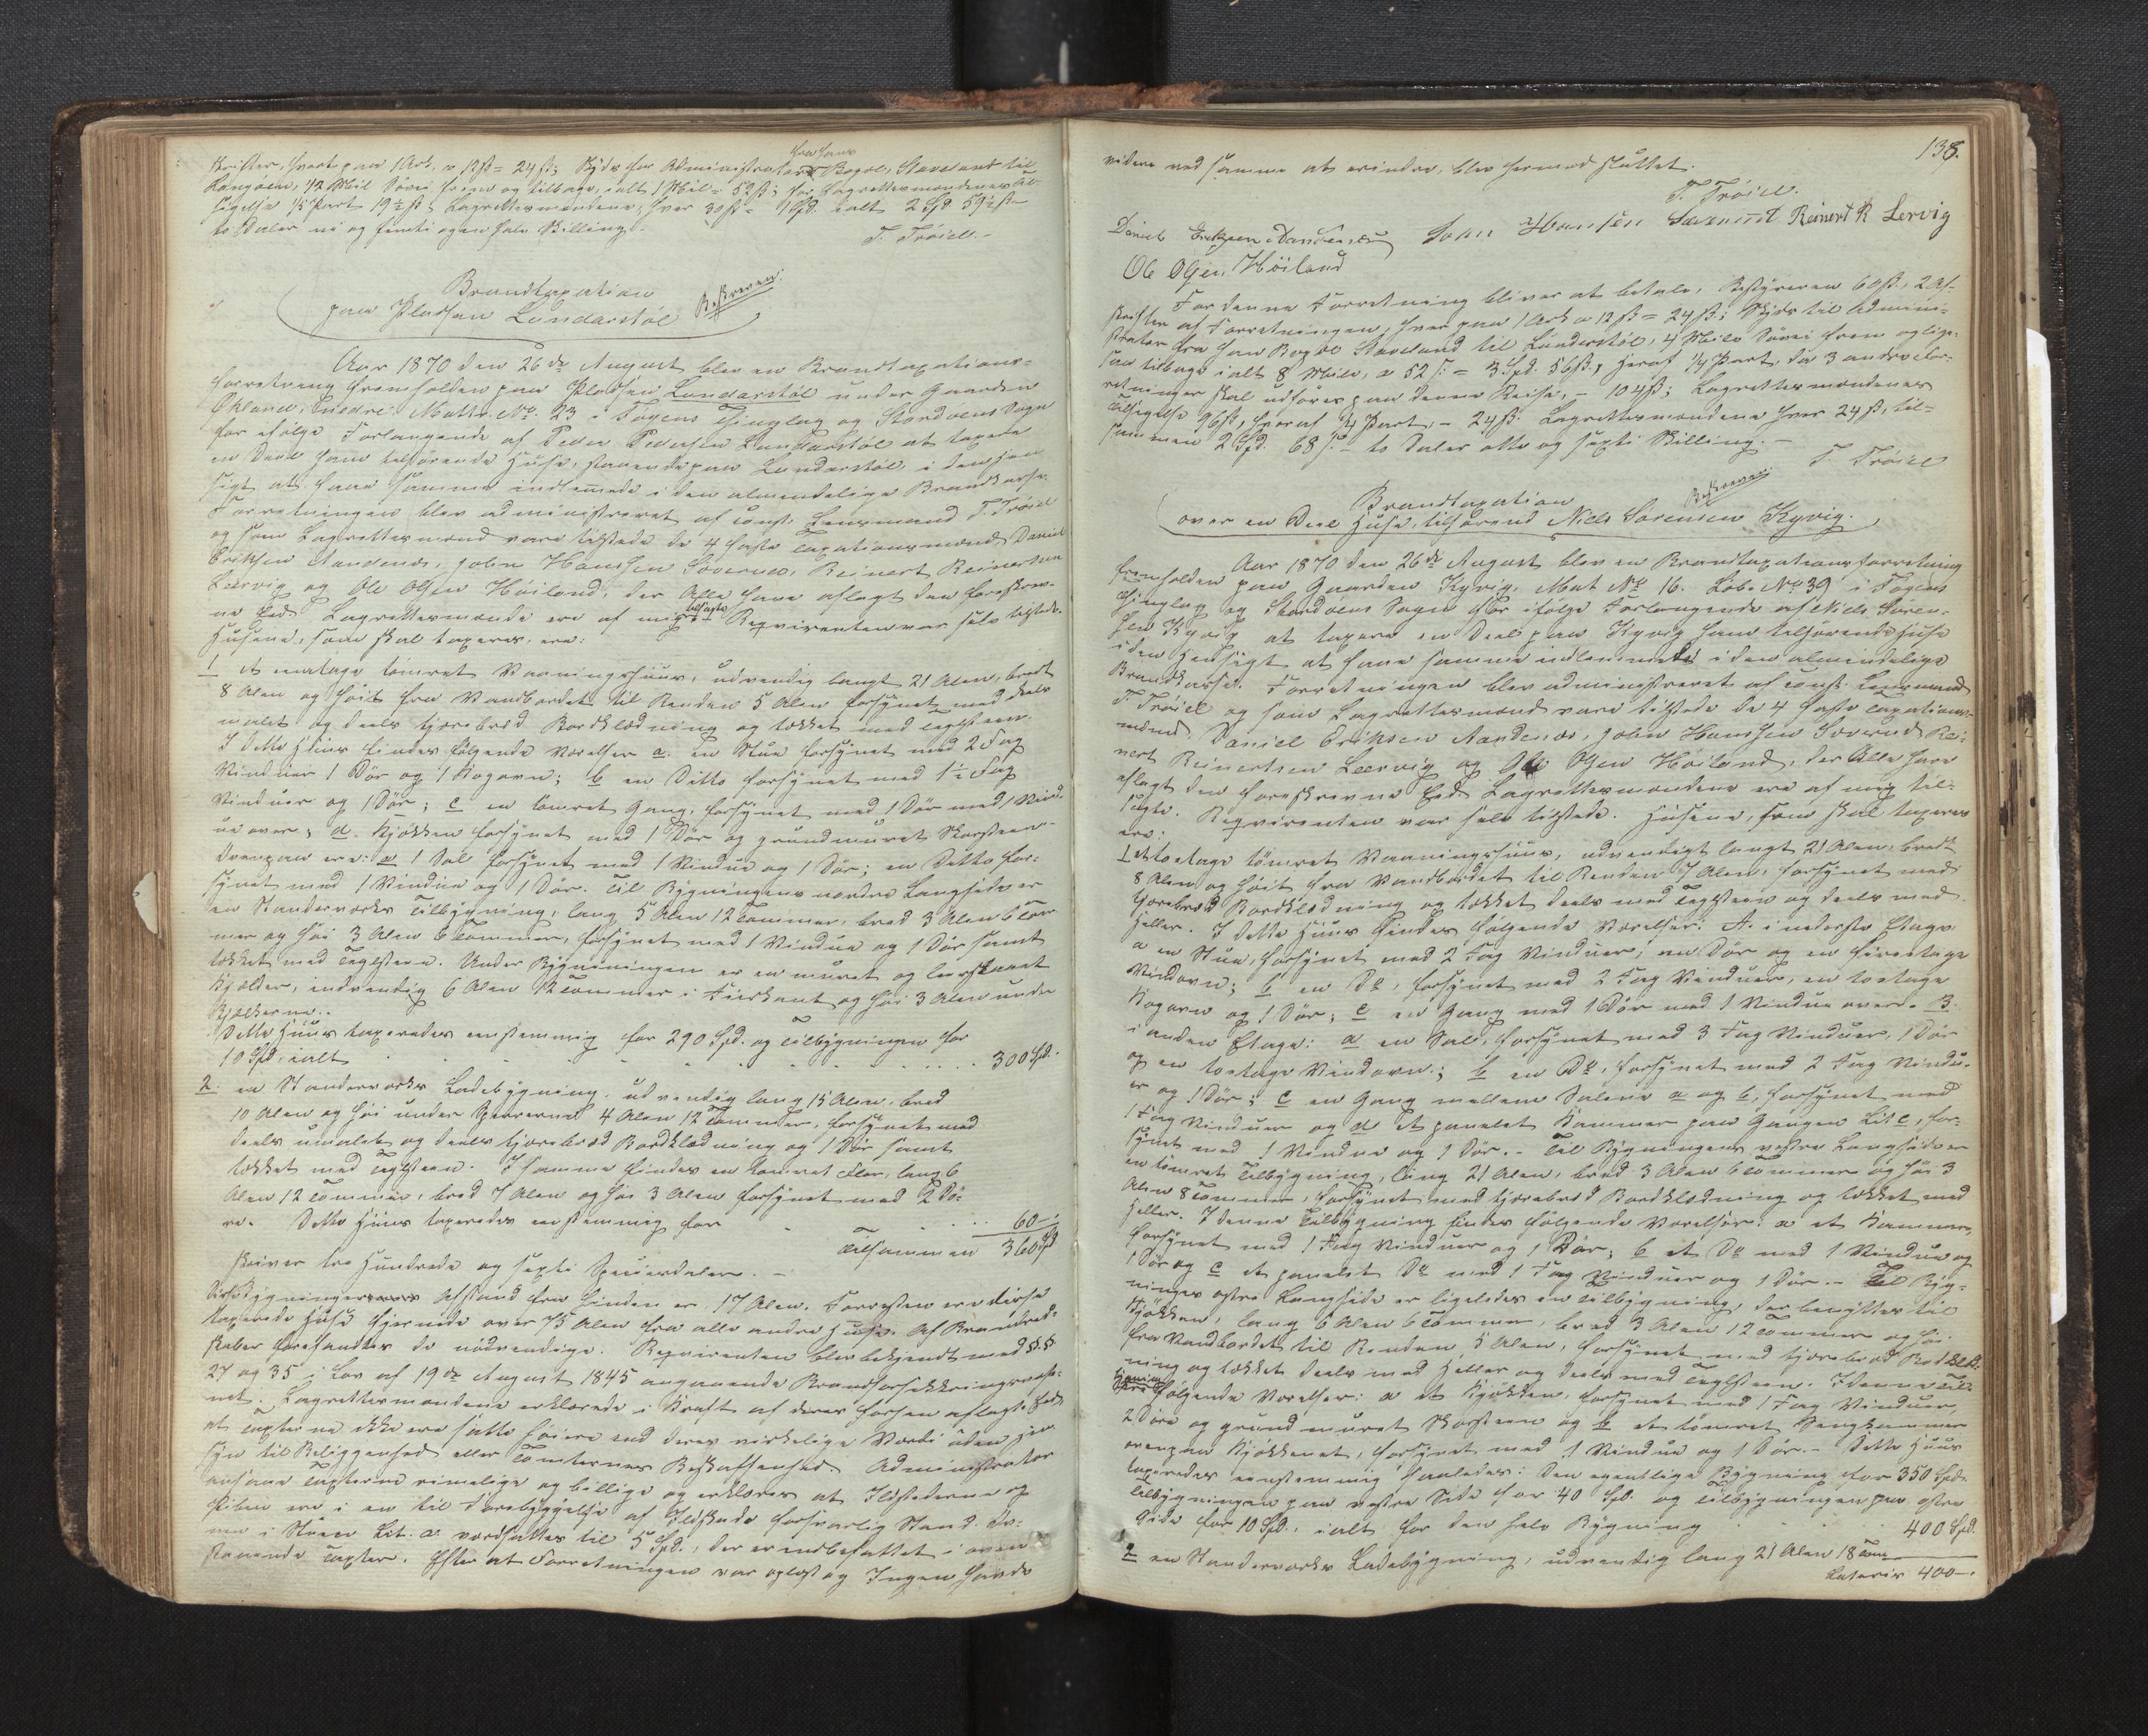 skrifter, hvert paa 1 Ark, a 12 ß = 24 ß; Skyds for Administrator fra hans Bopæl, Staveland til
Langøen, 1/2 Miil Søvei frem og tilbage, ialt 1 Miil = 52 ß; for Lagrettesmændenes til-
sigelse 1/5 Part 19 1/2 ß; Lagrettesmændene, hver 30 ß = 1 Spd. ialt 2 Spd 59 1/2 ß
to Daler ni og femti og en halv Skilling.
T. Trøice.-
Brandtaxation
paa Pladsen Lundarstøl
Beskreven.
Aar 1870 den 26de August blev en Brandtaxations-
forretning fremholden paa Pladsen Lundarstøl under Gaarden
Økland, Matr. No. 23 i Føyens Thinglag og Stordøens Sogn
for ifølge Forlangende af Peder Pedersen Lundarstøl at taxere
en Deel ham tilhørende Huse, staaende paa Lundarstøl, i den hen-
sigt at faae samme indlemmede i den almindelige Brandkasse.
Forretningen blev administreret af const. Lensmand T. Trøice
og som Lagrettesmænd vare tilstede de 4 faste Taxationsmænd, Daniel
Eriksen Aandenes, John Hansen Sævernd, Reinert Reinertsen
Leervig og Ole Olsen Høiland, der Alle have aflagt den foreskrev-
ne Eed. Lagrettesmændene ere af mig tilsagte. Reqvirenten var selv tilstede.
Husene, som skal taxeres, ere:
1 et enetages tømret Vaaningshuus, udvendig langt 21 Alen, bredt
8 Alen og høit fra Vandbordet til Renden 5 Alen forsynet med deels
malet og deels tjærebred Bordklædning og tækket med teglsteen.
I dette Huus findes følgende Værelser a. en Stue forsynet med 2 Fag
Vinduer 1 Dør og 1 Kogovn; b en Ditto forsynet med 1 1/2 Fag
Vinduer og 1 Dør; c en tømret Gang, forsynet med 1 Dør med 1 Vind-
ue over; d. Kjøkken forsynet med 1 Dør og grundmuret Skorsteen.
Ovenpaa ere: a 1 Sal forsynet med 1 Vindue og 1 Dør; en Ditto for-
synet med 1 Vindue og 1 Dør. Til Bygningens nordre Langside er
en Standerværks Tilbygning, lang 5 Alen 12 Tommer, bred 3 Alen 6 Tom-
mer og høi 3 Alen 6 Tommer, forsynet med 1 Vindue og 1 Dør samt
tækket med Teglsteen. Under Bygningen er en muret og
Kjælder, indvendig 6 Alen 12 Tommer i Fiirkant og høi 3 Alen under
Bjælkerne.
Dette Huus taxeredes eenstemmig for 290 Spd. og Tilbygningen for
10 Spd, ialt . . . . . . . . . 300 Spd.
2. en Standerværks Ladebygning, udvendig lang 15 Alen, bred
10 Alen og høi under Sperrerne 4 Alen 12 Tommer, forsynet med
deels umalet og deels tjærebred Bordklædning og 1 Dør samt
tækket med Teglsteen. I samme findes en tømret Flor, lang 6
Alen 12 Tommer, bred 7 Alen og høi 3 Alen forsynet med 2 Dø-
re. Dette Huus taxeredes eenstemmig for . . . . . 60 -
Tilsammen 360 Spd
skriver tre Hundrede og sexti Speciedaler. -
Afstand fra hinden er 17 Alen. Forresten ere disse
taxerede Huse fjernede over 75 Alen fra alle andre Huse. Af Brandred-
skaber forefandtes de nødvendige. Reqvirenten blev bekjendt med §§
27 og 35 i Lov af 19de August 1845 angaaende Brandforsikkringsvæse-
net. Lagrettesmændene erklærede i Kraft af deres forhen aflagte Eed,
at Taxterne ikke ere satte høiere end deres virkelige Værdi uden hen-
syn til Beliggenhed eller Tomternes Beskaffenhed. Administrator
ansaae Taxterne rimelige og billige og erklæres at Ildstederne og
Piben ere i en til Forebyggelse af Ildskade forsvarlig Stand.
nen i Stuen Lit. a værdsattes til 5 Spd., der er indbefattet i oven-
staaende Taxter. Efter at Forretningen var oplæst og Ingen havde
138.
videre ved samme at erindre, blev hermed sluttet.
T. Trøice.
Daniel Eriksen Aandenes John Hansen Sævernd Reinert R Lervig
Ole Olsen Høiland
For denne Forretning bliver at betale, Bestyreren 60 ß, 2 Af-
skrifter af Forretningen, hver paa 1 Ark a 12 ß = 24 ß; Skyds til Admini-
strator fra hans Bopæl Staveland til Lundarstøl, 4 Miile Søvei frem og lige-
saa tilbage ialt 8 Miile, a 52 ß = 3 Spd. 56 ß, heraf 1/4 Part, da 3 andre For-
retninger skal udføres paa denne Reise, - 104 ß; Lagrettesmændenes
Tilsigelse 96 ß, heraf 1/4 Part, - 24 ß. Lagrettesmændene hver 24 ß, til-
sammen 2 Spd. 68 ß - to Daler otte og sexti Skilling. -
T. Trøice
Brandtaxation
Beskreven
over en Deel Huse, tilhørend Niels Sørensen Kyvig.
Aar 1870 den 26de August blev en Brandtaxationsforretning
fremholden paa Gaarden Kyvig, Mat No. 16. Løb. No. 39 i Føyens
Thinglag og Stordøens Sogn for ifølge Forlangende af Niels Søren-
sen Kyvig at taxere en Deel paa Kyvig ham tilhørende Huse
i den Hensigt at faae samme indlemmede i den almindelige
Brandkasse. Forretningen blev administreret af const. Lensmand
T. Trøice og som Lagrettesmænd vare tilstede de 4 faste Taxations-
mænd. Daniel Eriksen Aandenes, John Hansen Sævernd Rei-
nert Reinertsen Leervig og Ole Olsen Høiland, der Alle have
aflagt den foreskrevne Eed. Lagrettesmændene ere af mig til-
sagte. Reqvirenten var selv tilstede. Husene, som skal taxeres
ere:
1 et toetages tømret Vaaningshuus, udvendigt langt 21 Alen, bredt
8 Alen og høit fra Vandbordet til Renden 7 Alen, forsynet med
tjærebred Bordklædning og tækket deels med Teglsteen og deels med
Heller. I dette Huus findes følgende Værelser: A. i nederste Etage:
a en Stue, forsynet med 2 Fag Vinduer, en Dør og en fireetages
Vindovn; b en Do, forsynet med 2 Fag Vinduer, en toetages
Kogovn og 1 Dør; c en Gang med 1 Dør med 1 Vindue over. B.
i anden Etage: a en Sal, forsynet med 3 Fag Vinduer, 1 Dør
og en toetages Vindovn; b en Do, forsynet med 2 Fag Vindu-
er og 1 Dør; c en Gang mellem Salene a og b, forsynet med
1 Fag Vinduer og d et panelet Kammer paa Gangen Lit c, for-
synet med 1 Vindue og 1 Dør. - Til Bygningens vestre Langside er
en tømret Tilbygning, lang 21 Alen, bred 3 Alen 6 Tommer og høi 3
Alen 8 Tommer, forsynet med tjærebred Bordklædning og tækket med
Heller. I denne Tilbygning findes følgende Værelser: a et Kammer,
forsynet med 1 Fag Vinduer og 1 Dør; b et Do med 1 Vindue og
1 Dør og c et panelet Do med 1 Fag Vinduer og 1 Dør. - Til Byg-
ningens østre Langside er ligeledes en Tilbygning, der benyttes til
Kjøkken, lang 6 Alen 6 Tommer, bred 3 Alen 12 Tommer og høi
fra Vandbordet til Renden 5 Alen, forsynet med tjærebred Bordklæd-
ning og tækket deels med Heller og deels med Teglsteen. I denne Til-
bygning følgende Værelser: a et Kjøkken, forsynet med 1 Fag Vinduer,
2 Døre og grundmuret Skorsteen og b et tømret Sengkammer
ovenpaa Kjøkkenet, forsynet med 1 Vindue og 1 Dør. - Dette Huus
taxeredes eenstemmig saaledes: Den egentlige Bygning for 350 Spd.
Tilbygningen paa vestre Side for 40 Spd. og Tilbygningen paa østre
Side for 10 Spd., ialt for den hele Bygning . . . 400 Spd.
2 en Standerværks Ladebygning, udvendig lang 21 Alen 18 Tom
Lateris 400 -